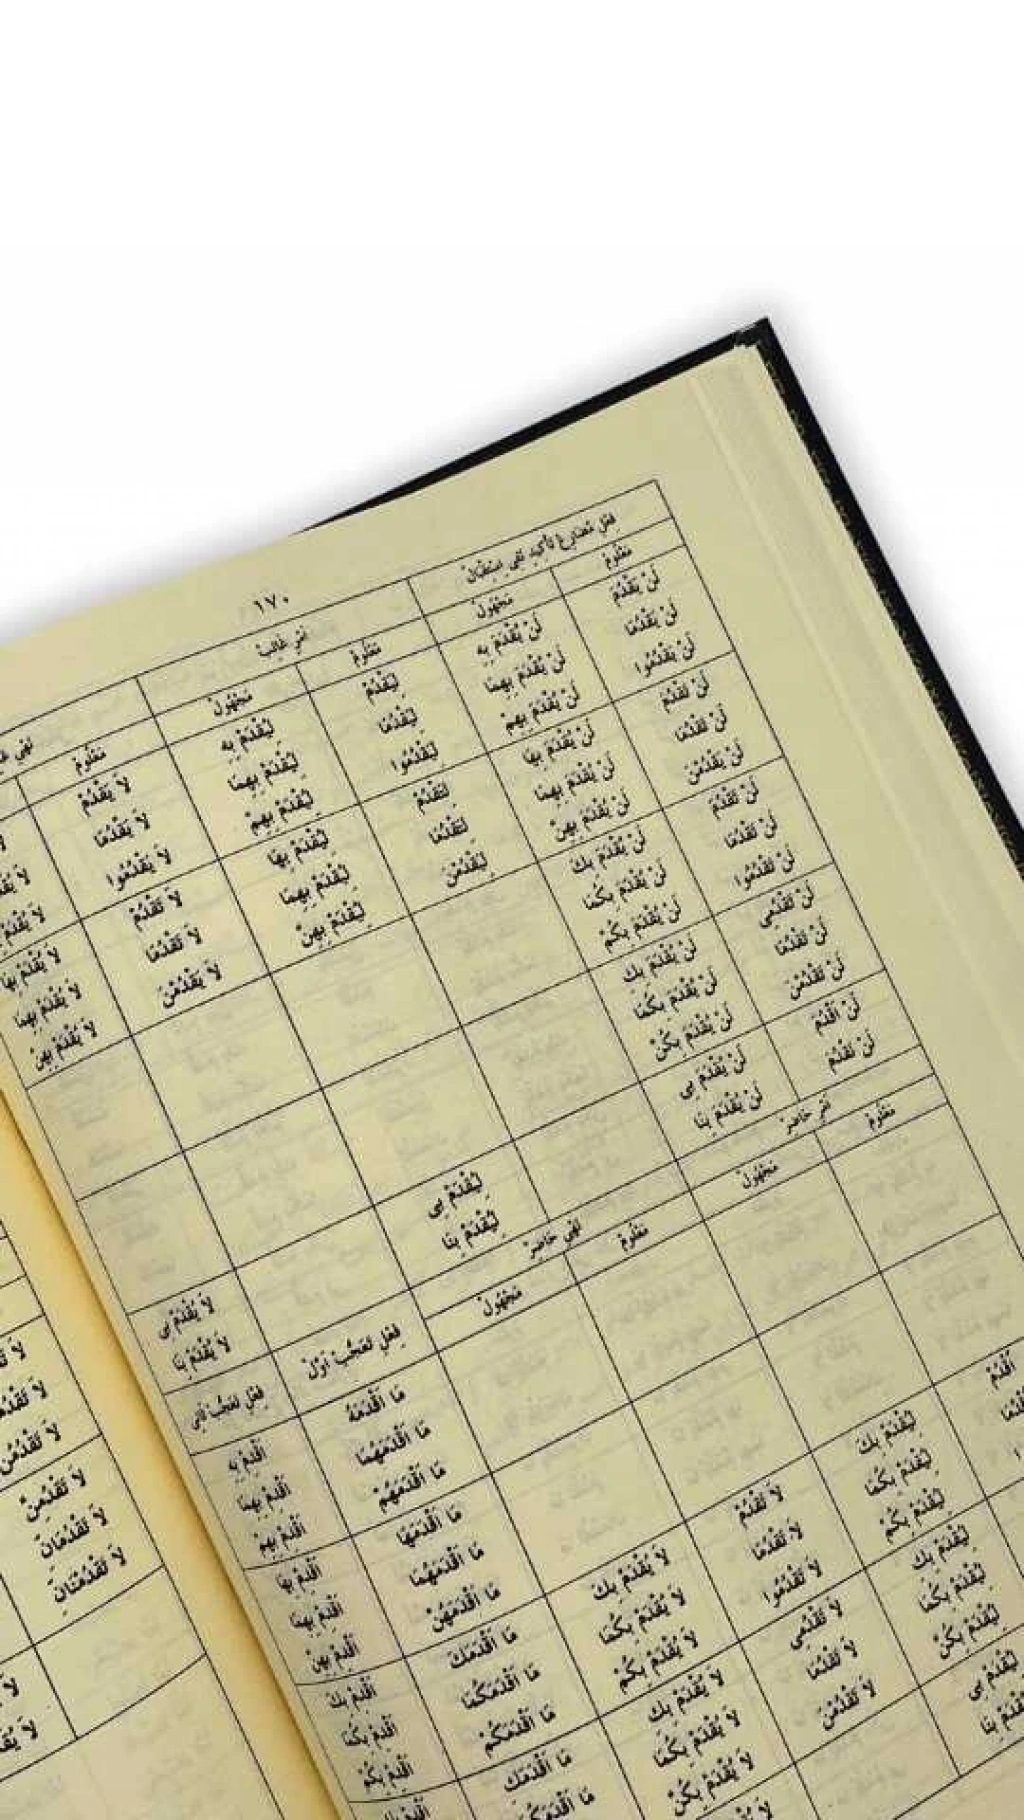 ١٧٠
فِعْلِ مُضَارِعْ تَأْكِيدِ نَفْيِ اِسْتِقْبَالْ
مَعْلُومْ
لَنْ يَقْدُمَ
لَنْ يَقْدُمَا
لَنْ يَقْدُمُوا
لَنْ تَقْدُمَ
لَنْ تَقْدُمَا
لَنْ يَقْدُمْنَ
لَنْ تَقْدُمَ
لَنْ تَقْدُمَا
لَنْ تَقْدُمُوا
لَنْ تَقْدُمِى
لَنْ تَقْدُمَا
لَنْ تَقْدُمْنَ
لَنْ اَقْدُمَ
لَنْ نَقْدُمَ
مَجْهُولْ
لَنْ يُقْدَمَ بِهِ
لَنْ يُقْدَمَ بِهِمَا
لَنْ يُقْدَمَ بِهِمْ
لَنْ يُقْدَمَ بِهَا
لَنْ يُقْدَمَ بِهِمَا
لَنْ يُقْدَمَ بِهِنَّ
لَنْ يُقْدَمَ بِكَ
لَنْ يُقْدَمَ بِكُمَا
لَنْ يُقْدَمَ بِكُمْ
لَنْ يُقْدَمَ بِكِ
لَنْ يُقْدَمَ بِكُمَا
لَنْ يُقْدَمَ بِكُنَّ
لَنْ يُقْدَمَ بِى
لَنْ يُقْدَمَ بِنَا
اَمْرِ غَائِبْ
مَعْلُومْ
لِيَقْدُمْ
لِيَقْدُمَا
لِيَقْدُمُوا
لِتَقْدُمْ
لِتَقْدُمَا
لِيَقْدُمْنَ
مَجْهُولْ
لِيُقْدَمْ بِهِ
لِيُقْدَمْ بِهِمَا
لِيُقْدَمْ بِهِمْ
لِيُقْدَمْ بِهَا
لِيُقْدَمْ بِهِمَا
لِيُقْدَمْ بِهِنَّ
لِيُقْدَمْ بِى
لِيُقْدَمْ بِنَا
نَهْىِ
مَعْلُومْ
لَا يَقْدُمْ
لَا يَقْدُمَا
لَا يَقْدُمُوا
لَا تَقْدُمْ
لَا تَقْدُمَا
لَا يَقْدُمْنَ
لَا يُقْدَمْ بِهَا
لَا يُقْدَمْ بِهِمَا
لَا يُقْدَمْ بِهِنَّ
لَا يُقْدَمْ بِى
لَا يُقْدَمْ بِنَا
اَمْرِ حَاضِرْ
مَعْلُومْ
اُقْدُمْ
مَجْهُولْ
لِيُقْدَمْ بِكَ
لِيُقْدَمْ بِكُمَا
لِيُقْدَمْ بِكُمْ
لِيُقْدَمْ بِكِ
لِيُقْدَمْ بِكُمَا
لِيُقْدَمْ بِكُنَّ
لِيُقْدَمْ بِى
لِيُقْدَمْ بِنَا
نَهْىِ حَاضِرْ
مَعْلُومْ
لَا تَقْدُمْ
لَا تَقْدُمَا
لَا تَقْدُمُوا
لَا تَقْدُمِى
لَا تَقْدُمَا
لَا تَقْدُمْنَ
مَجْهُولْ
لَا يُقْدَمْ بِكَ
لَا يُقْدَمْ بِكُمَا
لَا يُقْدَمْ بِكُمْ
لَا يُقْدَمْ بِكِ
لَا يُقْدَمْ بِكُمَا
لَا يُقْدَمْ بِكُنَّ
فِعْلِ تَعَجُّبْ اَوَّلْ
مَا اَقْدَمَهُ
مَا اَقْدَمَهُمَا
مَا اَقْدَمَهُمْ
مَا اَقْدَمَهَا
مَا اَقْدَمَهُمَا
مَا اَقْدَمَهُنَّ
مَا اَقْدَمَكَ
مَا اَقْدَمَكُمَا
مَا اَقْدَمَكُمْ
مَا اَقْدَمَكِ
مَا اَقْدَمَكُمَا
فِعْلِ تَعَجُّبْ ثَانِى
اَقْدِمْ بِهِ
اَقْدِمْ بِهِمَا
اَقْدِمْ بِهِمْ
اَقْدِمْ بِهَا
اَقْدِمْ بِهِمَا
اَقْدِمْ بِهِنَّ
اَقْدِمْ بِكَ
اَقْدِمْ بِكُمَا
اَقْدِمْ بِكُمْ
لَا تَقْدُمِنَّ
لَا تَقْدُمَانِّ
لَا تَقْدُمْنَانِّ